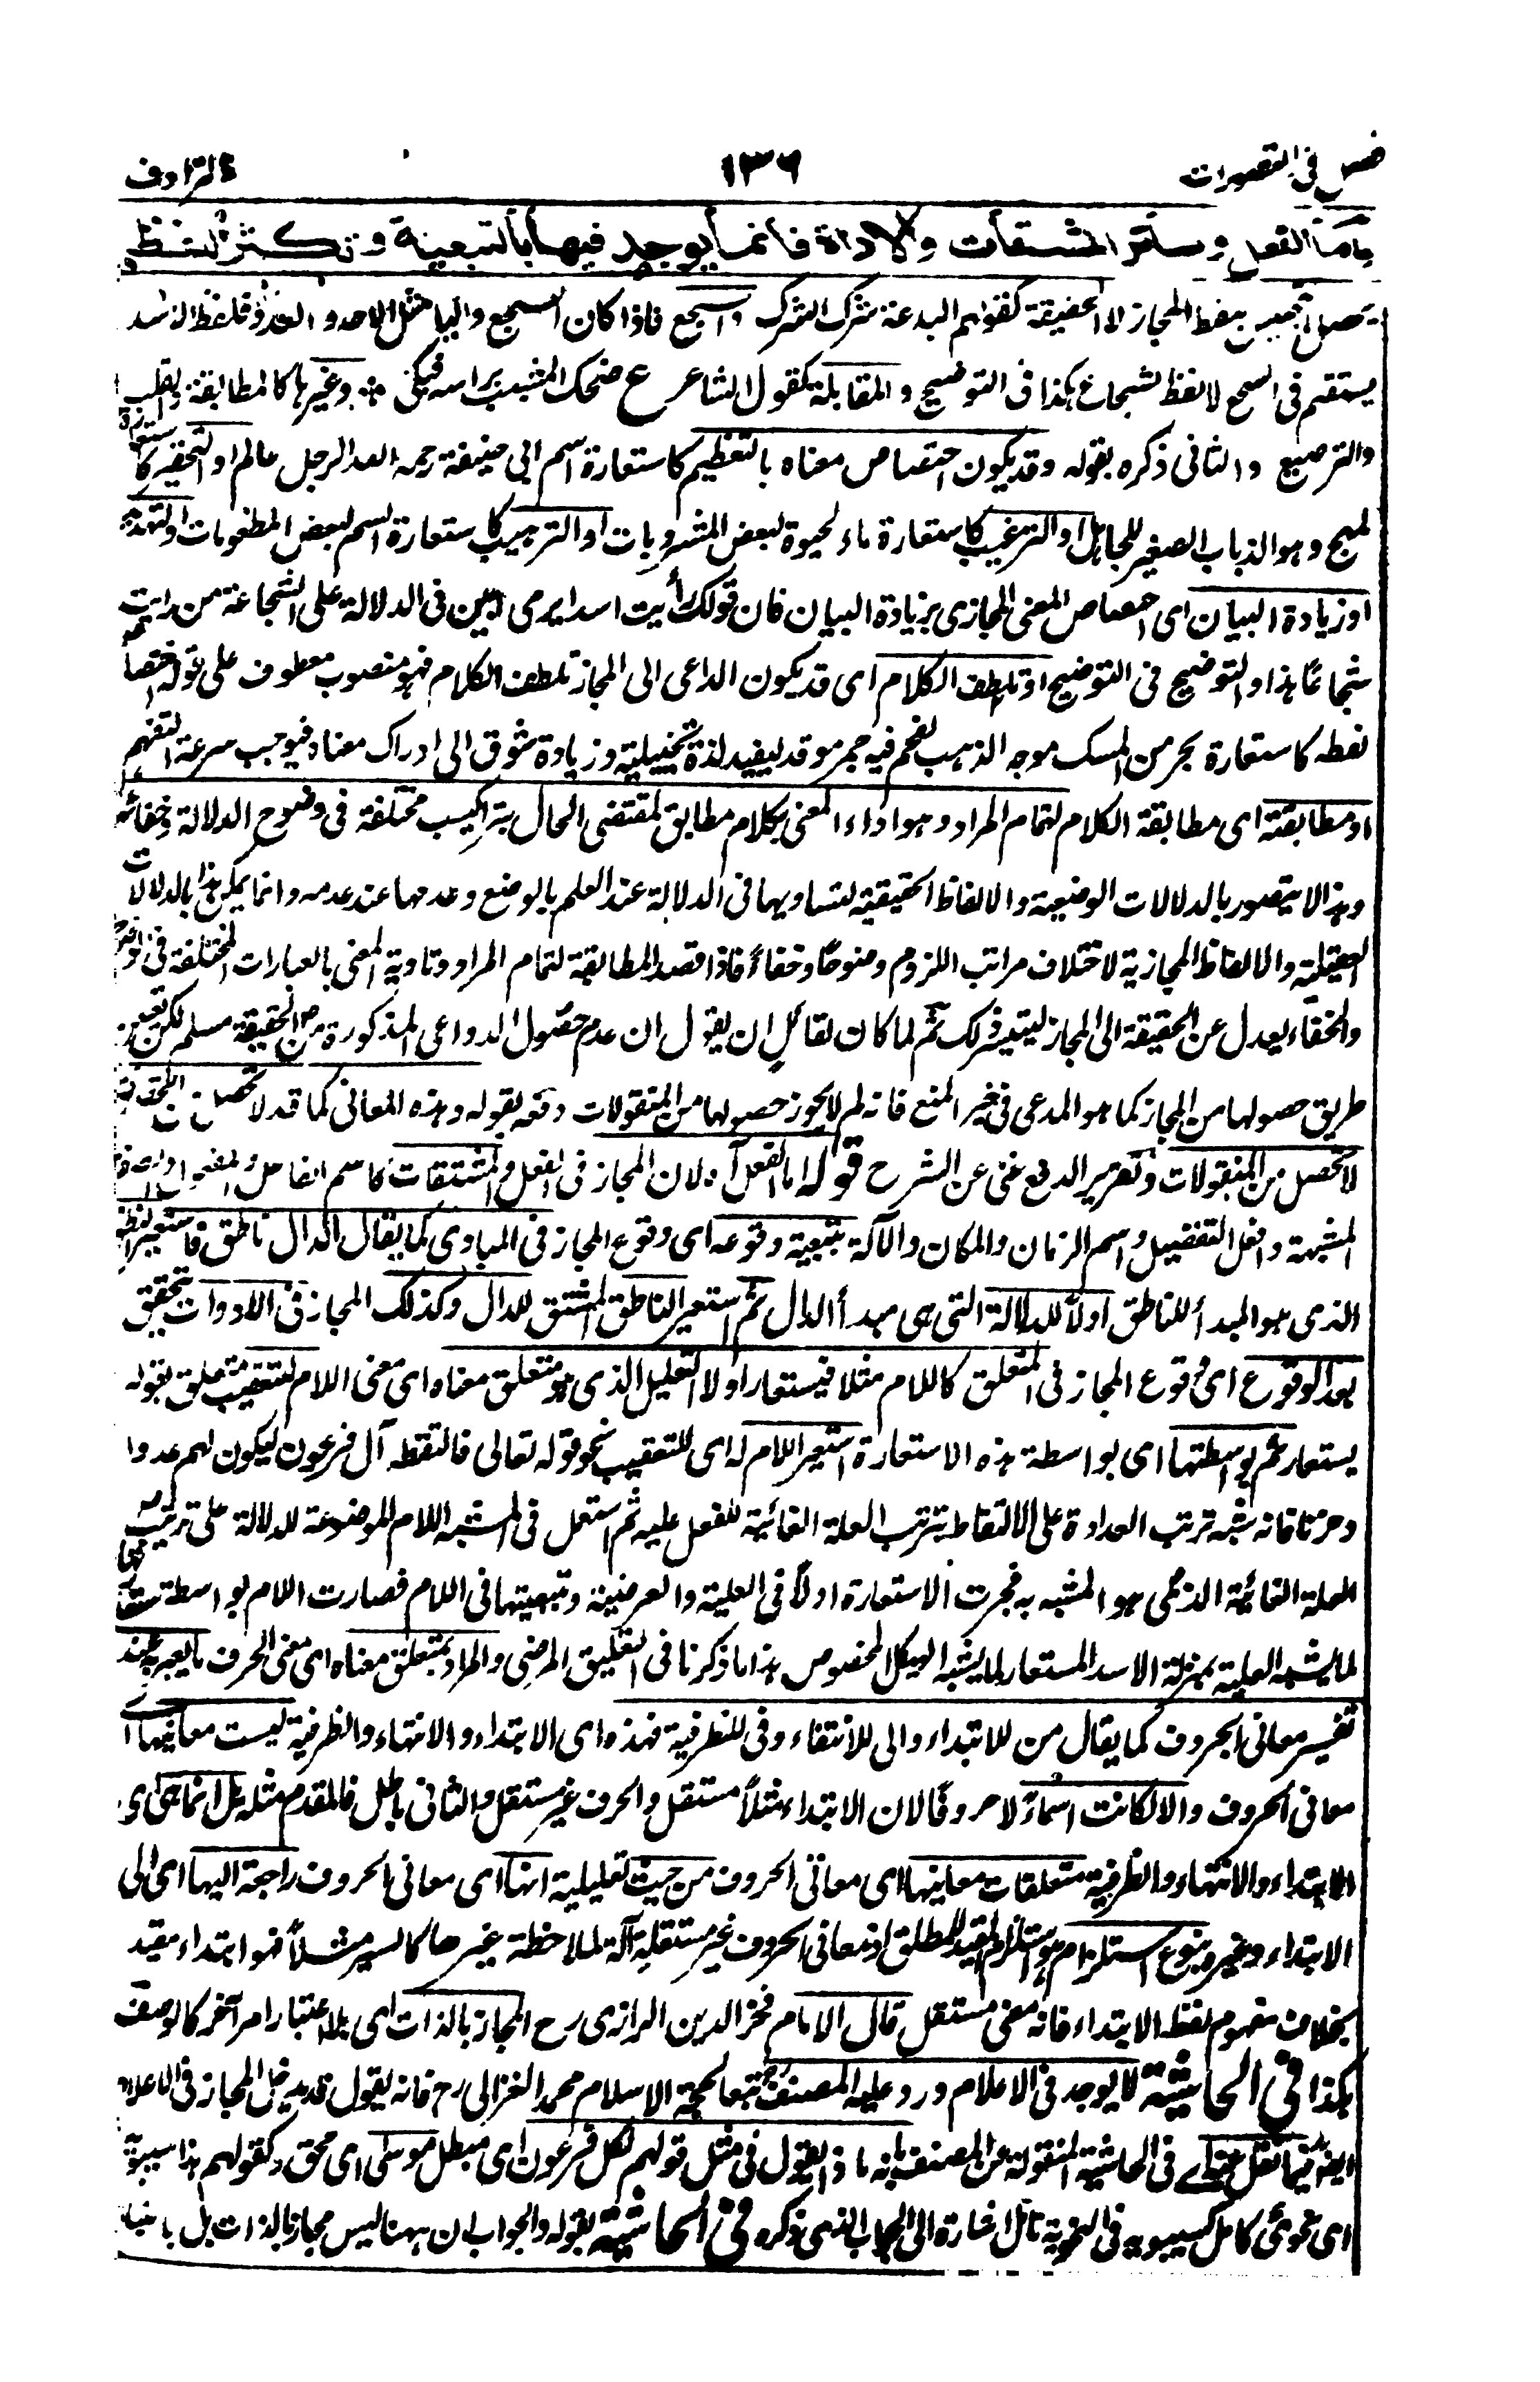 فصل في التصورات ١٣٦ الترادف
واما الفعل وسائر المشتقات والاداة فانما يوجد فيها بالتبعية وتكثر اللفظ
بلفظ المجاز لا الحقيقة كقولهم البدعة شرك الشرك والسجع فاذا كان السجع والياء مثل الاحد والعدد فلفظ الاسد
يستقيم في السجع لا لفظ الشجاع هكذا في التوضيح والمقابلة كقول الشاعر ع ضحك المشيب براسه فبكى وغيرها كالمطابقة والقلب
والترصيع والثاني ذكره بقوله وقد يكون اختصاص معناه بالتعظيم كاستعارة اسم ابي حنيفة رحمه الله لرجل عالم او التحقير كاستعارة
لهمج وهو الذباب الصغير للجاهل او الترغيب كاستعارة ماء الحيوة لبعض المشروبات او الترهيب كاستعارة السم لبعض المطعومات
او زيادة البيان اى اختصاص المعنى المجازى بزيادة البيان فان قولك رأيت اسدا يرمى ابين في الدلالة على الشجاعة من رايت
شجاعًا هذا والتوضيح في التوضيح او تلطف الكلام اى قد يكون الداعى الى المجاز تلطف الكلام فهو منصوب معطوف على قوله اختصاص
لفظه كاستعارة بحر من المسك موجه الذهب لفحم فيه جمر موقد ليفيد لذة تخييلية وزيادة شوق الى ادراك معناه فيوجب سرعة التفهم
او مطابقة اى مطابقة الكلام لتمام المراد وهو اداء المعنى بكلام مطابق لمقتضى الحال بتراكيب مختلفة في وضوح الدلالة وخفائه
وهذا لا يتصور بالدلالات الوضعية والالفاظ الحقيقية لتساويها في الدلالة عند العلم بالوضع وعدمها عند عدمه وانما يمكن هذا بالدلالات
العقلية والالفاظ المجازية لاختلاف مراتب اللزوم وضوحًا وخفاءً فاذا قصد المطابقة لتمام المراد وتأدية المعنى بالعبارات المختلفة في الوضوح
والخفاء يعدل عن الحقيقة الى المجاز ليتيسر ذلك ثم لما كان لقائل ان يقول ان عدم حصول الدواعى المذكورة من الحقيقة مسلم لكن تعين
طريق حصولها من المجاز كما هو المدعى في خير المنع فانه لم لا يجوز حصولها من المنقولات دفعه بقوله وهذه المعاني كما قد لا تحصل من الحقيقة
لا تحصل من المنقولات وتقرير الدفع غنى عن الشرح قوله اما الفعل آه لان المجاز في الفعل والمشتقات كاسم الفاعل والمفعول
المشبهة وافعل التفضيل واسم الزمان والمكان والآلة بتبعية وقوعه اى وقوع المجاز في المبادى كما يقال الدال ناطق فاستعير النطق
الذى هو المبدأ للناطق اولًا للدلالة التى هى مبدأ الدال ثم استعير الناطق المشتق للدال وكذلك المجاز في الادوات يتحقق
بعد الوقوع اى وقوع المجاز في المتعلق كاللام مثلا فيستعار اولا التعليل الذى هو متعلق معناه اى معنى اللام للتعقيب متعلق بقوله
يستعار ثم بواسطتها اى بواسطة هذه الاستعارة استعير اللام له اى للتعقيب نحو قوله تعالى فالتقطه آل فرعون ليكون لهم عدوا
وحزنا فانه شبه ترتب العداوة على الالتقاط بترتب العلة الغائية للفعل عليه ثم استعمل في المشبه اللام الموضوعة للدلالة على ترتب
العلة الغائية الذى هو المشبه به فجرت الاستعارة اولًا في العلية والغرضية وتبعيتها في اللام فصارت اللام بواسطة
لما يشبه العلية بمنزلة الاسد المستعار لما يشبه الهيكل المخصوص هذا ما ذكرنا في التعليق المرضى والمراد بمتعلق معناه اى معنى الحرف ما يعبر به عند
تفسير معاني الحروف كما يقال من للابتداء والى للانتهاء وفي للظرفية فهذه اى الابتداء والانتهاء والظرفية ليست معانيها اى
معاني الحروف والا لكانت اسماءً لا حروفًا لان الابتداء مثلًا مستقل والحرف غير مستقل والثاني باطل فالمقدم مثله بل انما هى اى
الابتداء والانتهاء والظرفية متعلقات معانيها اى معاني الحروف من حيث تعليلية انها اى معاني الحروف راجعة اليها اى الى
الابتداء وغيره بنوع استلزام هو استلزام المقيد للمطلق اذ معاني الحروف غير مستقلة آلة لملاحظة غيرها كالسير مثلًا فهو ابتداء مقيد
بخلاف مفهوم لفظ الابتداء فانه معنى مستقل قال الامام فخر الدين الرازى رح المجاز بالذات اى بلا اعتبار امر آخر كالوصف
هكذا في الحاشية لا يوجد في الاعلام ورد عليه المصنف تبعا لحجة الاسلام محمد الغزالى رح فانه يقول قد يدخل المجاز في الاعلام
ايضا فيما نقل عنه في الحاشية المنقولة عن المصنف بانه ماذا يقول في مثل قولهم لكل فرعون اى مبطل موسى اى محق وكقولهم هذا سيبويه
اى نحوى كامل كسيبويه في النحوية تأمل اشارة الى الجواب الذى ذكره في الحاشية بقوله والجواب ان ههنا ليس مجازا بالذات بل